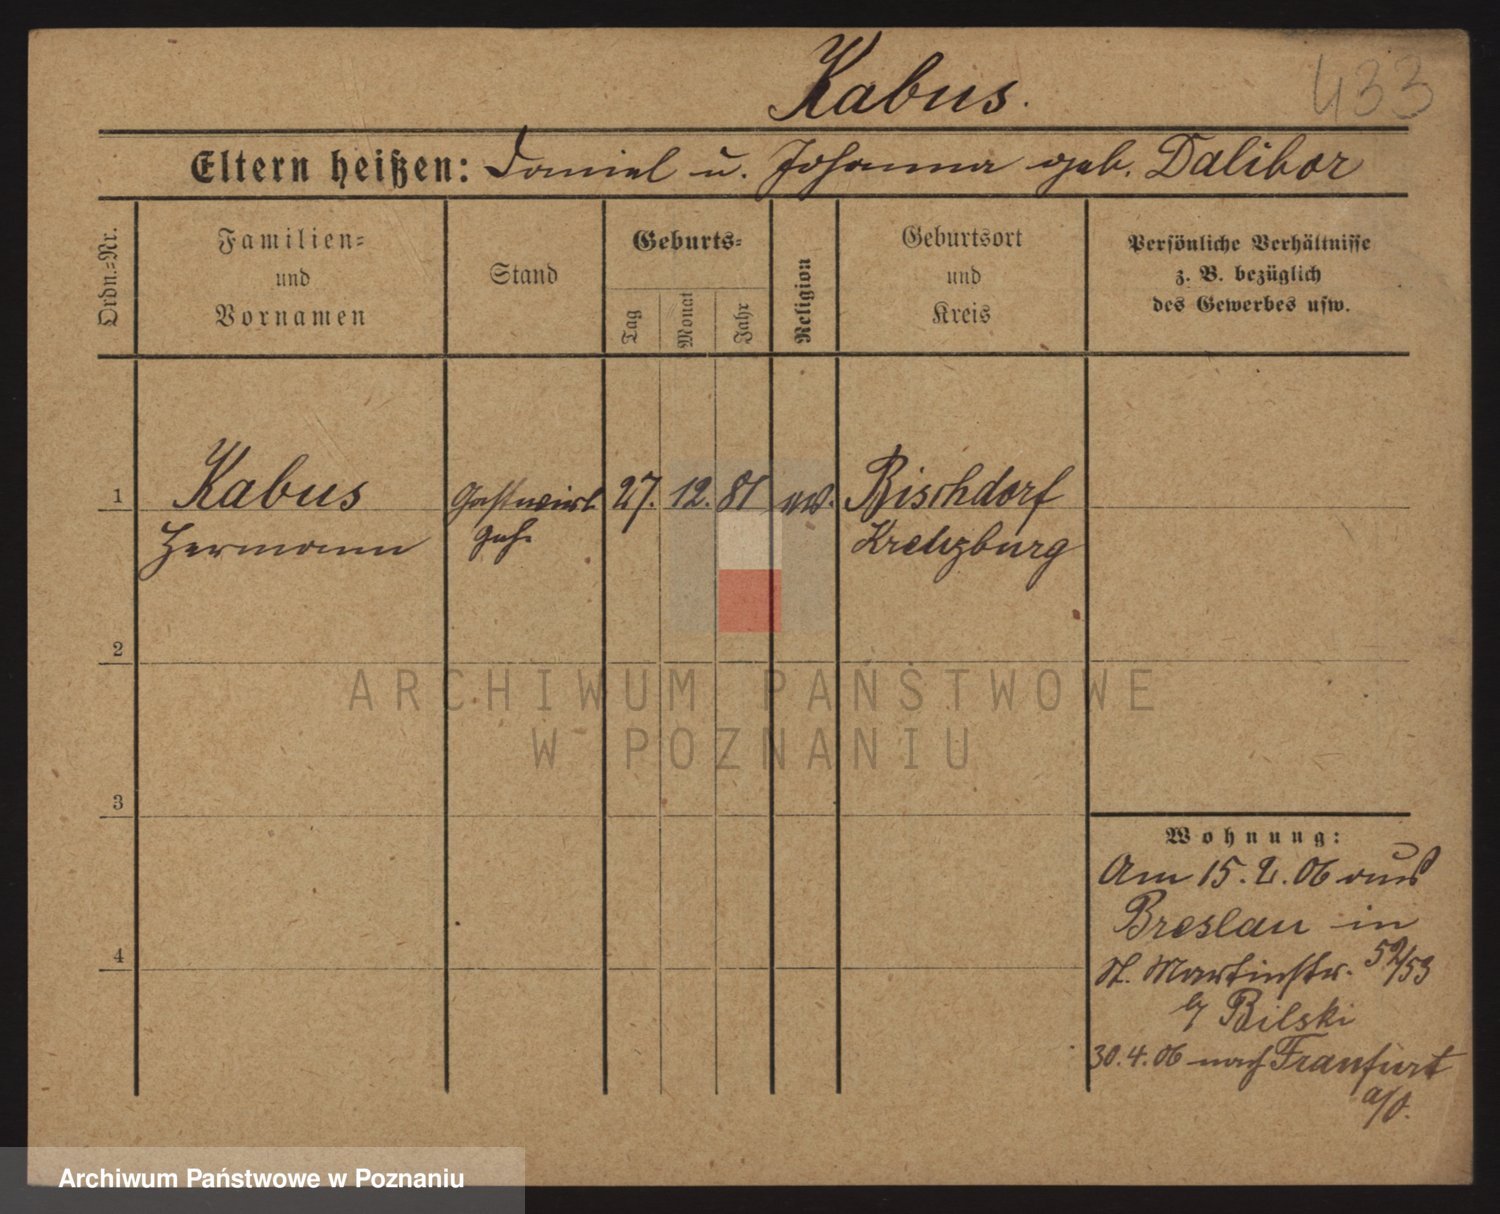 Kabus.
433
Eltern heißen: Daniel u. Johanna geb. Dalibor
Ordn.-Nr.
Familien-
und
Vornamen
Stand
Geburts-
Tag
Monat
Jahr
Religion
Geburtsort
und
Kreis
Persönliche Verhältnisse
z. B. bezüglich
des Gewerbes usw.
1
Kabus
Hermann
Gastwirt
27. 12. 81
Bischdorf
Kreuzburg
2
3
4
ARCHIWUM PAŃSTWOWE
W POZNANIU
Wohnung:
Am 15. 2. 06 aus
Breslau in
St. Martinstr. 52/53
b/ Bilski
30. 4. 06 nach Franfurt
a/O.
Archiwum Państwowe w Poznaniu